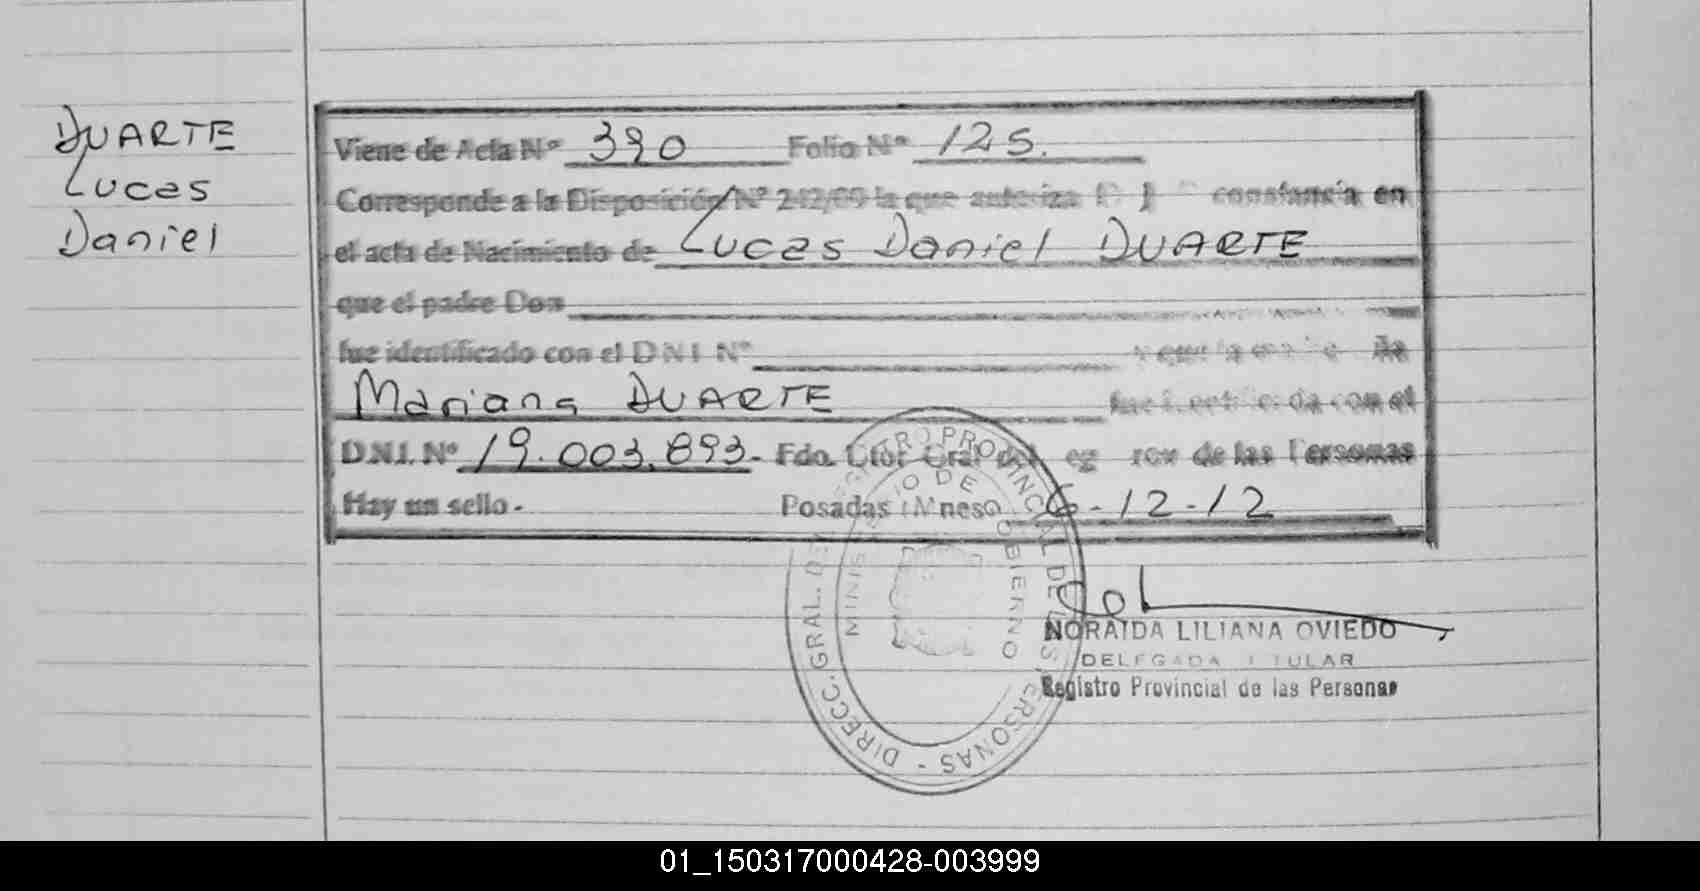 DUARTE
Lucas
Daniel
Viene de Acta Nº 390 Folio Nº 125.
Corresponde a la Disposición Nº 242/00 la que autoriza constancia en
el acta de Nacimiento de Lucas Daniel DUARTE
que el padre Don
fue identificado con el D N I Nº
Mariana DUARTE con el
D.N.I. Nº 19.003.893.- Fdo. Ctor Gral de las Personas
Hay un sello.- Posadas 6-12-12
DIRECC. GRAL. DEL REGISTRO PROVINCIAL DE LAS PERSONAS -
MINISTERIO DE GOBIERNO
NORAIDA LILIANA OVIEDO
DELEGADA TITULAR
Registro Provincial de las Personas
01_150317000428-003999